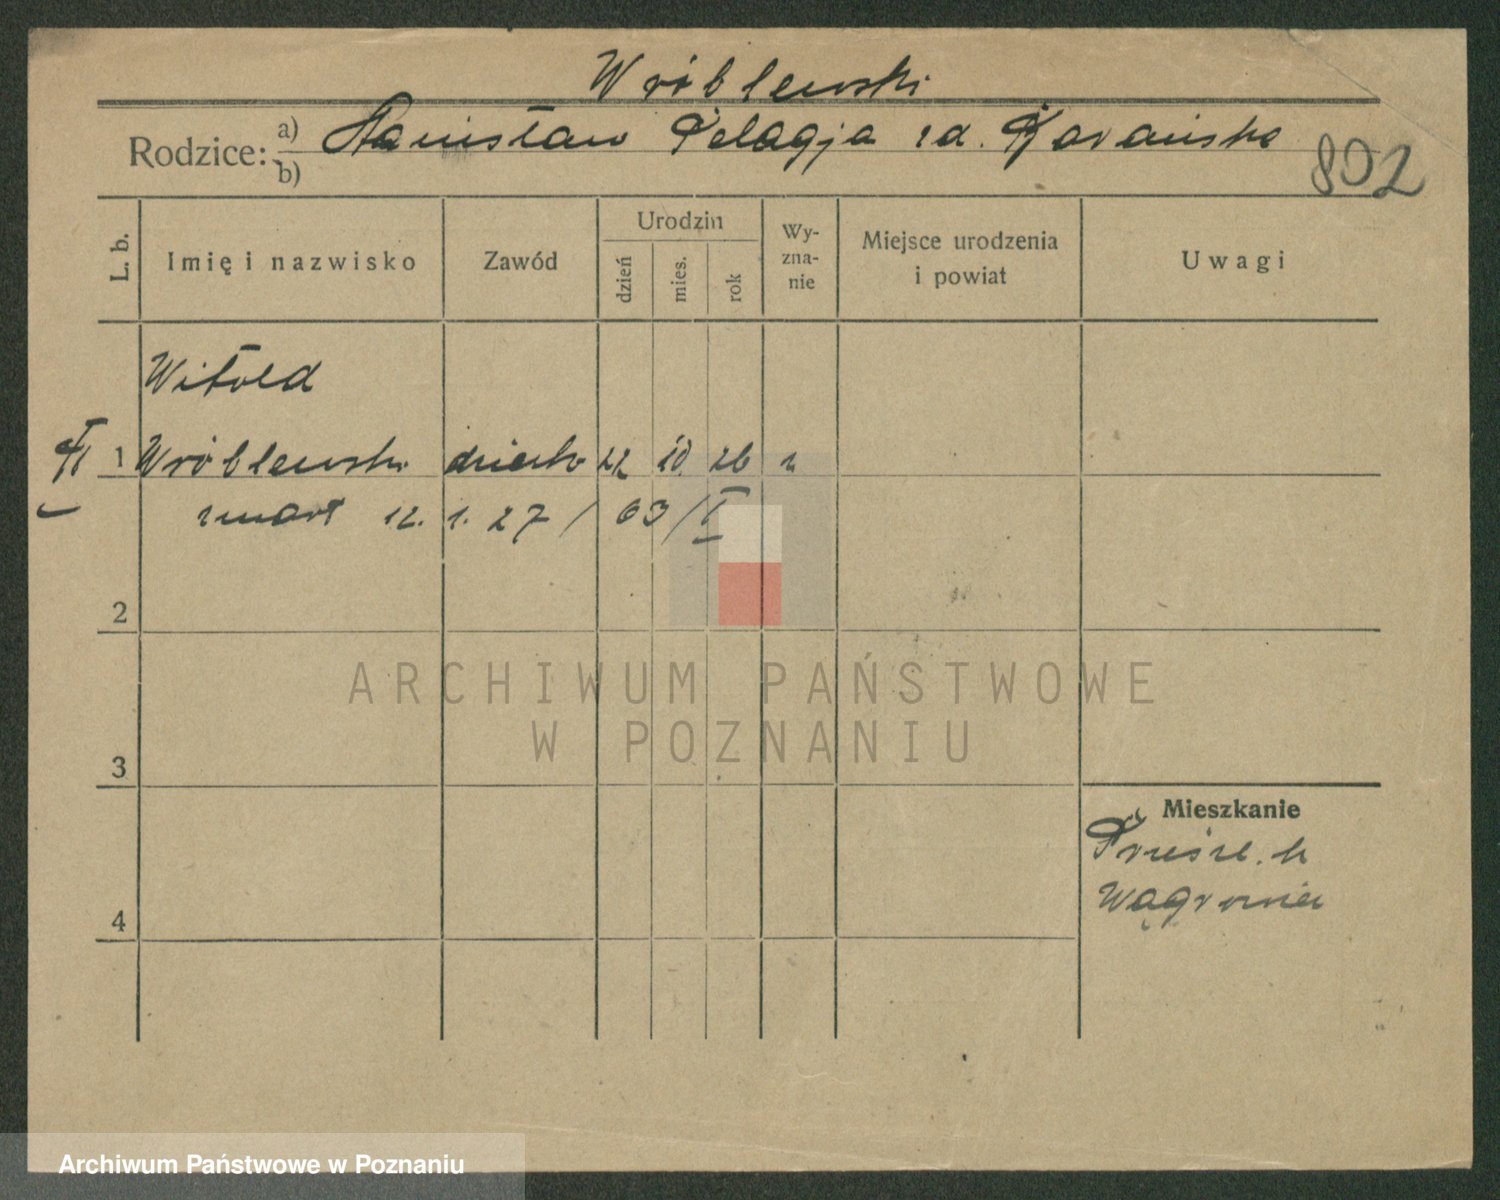 Wróblewski
Rodzice: a) Stanisław Pelagja zd.
b)
802
L. b. Imię i nazwisko Zawód Urodzin dzień mies. rok Wy-zna-nie Miejsce urodzenia i powiat Uwagi
Witold
1 Wróblewski dziecko 22 10 26 r
zmarł 12. 1. 27 / 63/I
2
ARCHIWUM PAŃSTWOWE
W POZNANIU
3
Mieszkanie
4
Archiwum Państwowe w Poznaniu